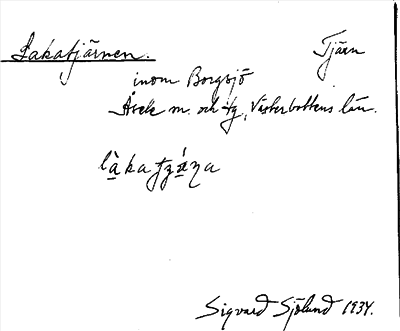 Lakatjärnen. Tjärn
inom Borgsjö
Åsele m. och tg, Västerbottens län.
Sigvard Sjölund 1934.